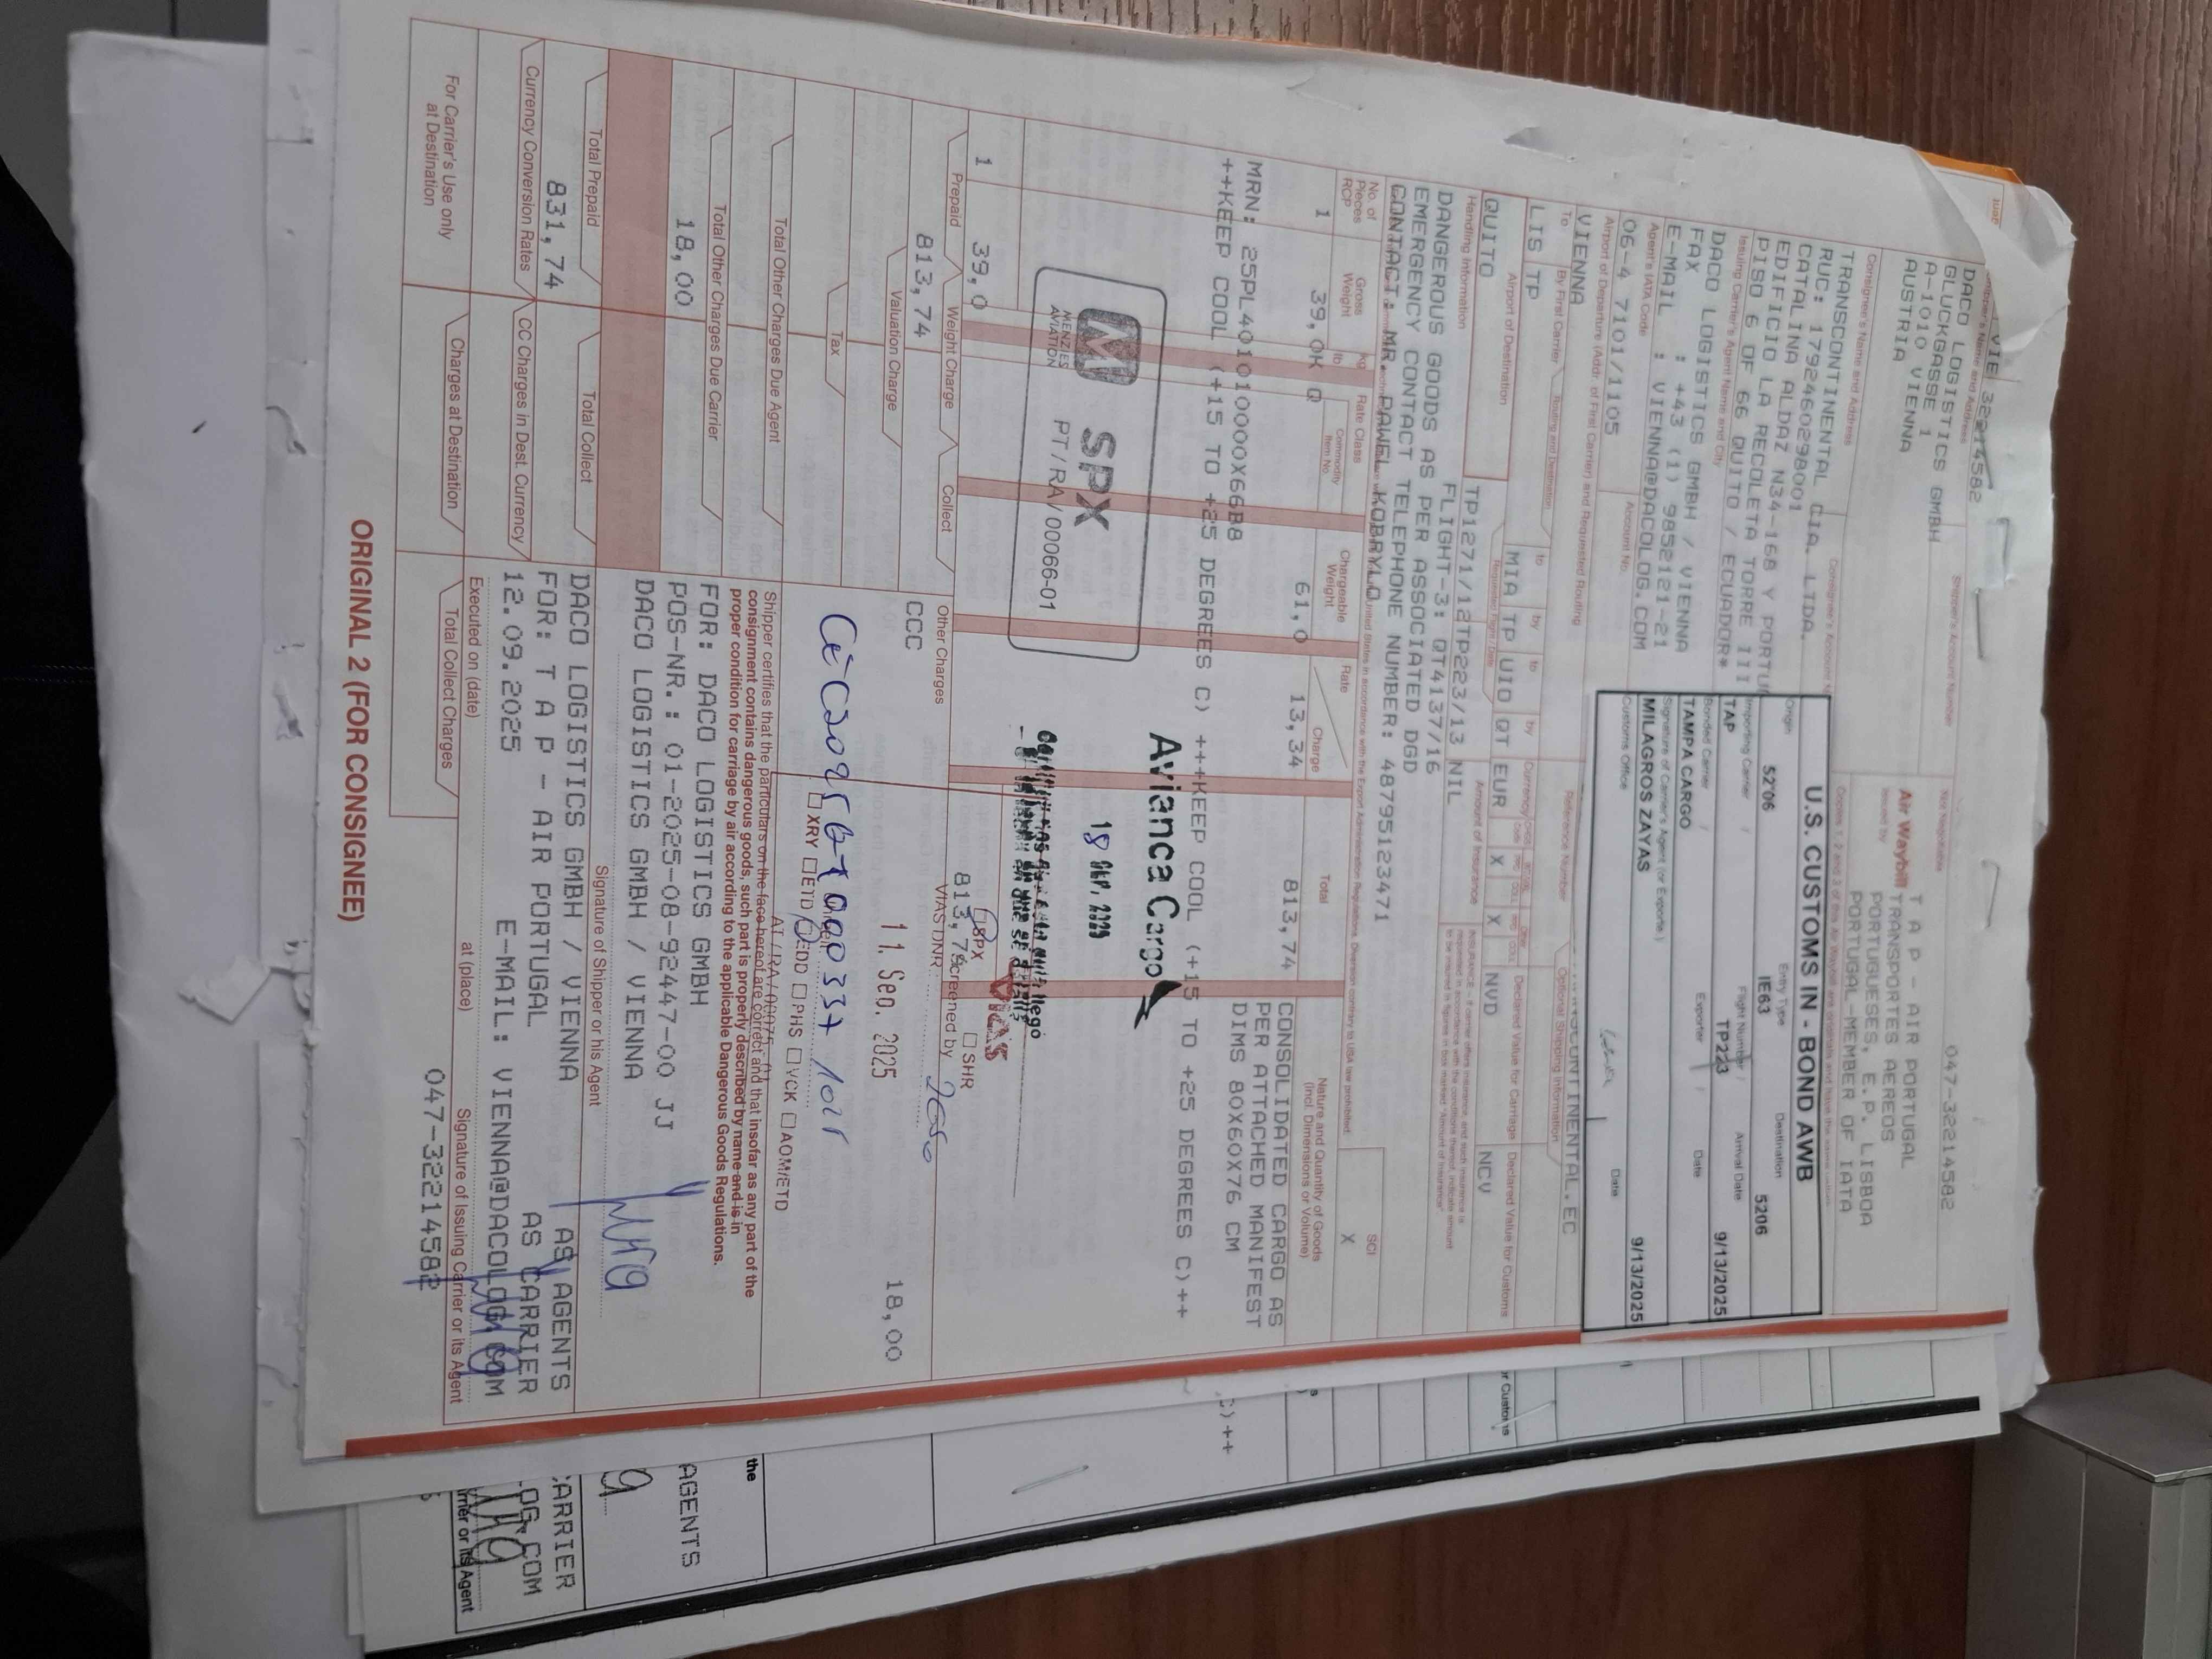 VIE 32214582
047-32214582
Shipper's Account Number
DACO LOGISTICS GMBH
GLUCKGASSE 1
A-1010 VIENNA
AUSTRIA
Not Negotiable
Air Waybill
Issued by
T A P - AIR PORTUGAL
TRANSPORTES AEREOS
PORTUGUESES, E.P. LISBOA
PORTUGAL-MEMBER OF IATA
Consignee's Name and Address
TRANSCONTINENTAL CIA. LTDA.
RUC: 1792460298001
CATALINA ALDAZ N34-168 Y PORTU
EDIFICIO LA RECOLETA TORRE 111
PISO 6 OF 66 QUITO / ECUADOR*
U.S. CUSTOMS IN - BOND AWB
Origin
Entry Type
Destination
5206
IE63
5206
Importing Carrier
Flight Number
Arrival Date
TAP
TP223
9/13/2025
Bonded Carrier
Exporter
Date
TAMPA CARGO
Signature of Carrier's Agent (or Exporter)
MILAGROS ZAYAS
9/13/2025
Customs Office
Date
Issuing Carrier's Agent Name and City
DACO LOGISTICS GMBH / VIENNA
FAX : +43 (1) 9852121-21
E-MAIL : VIENNA@DACOLOG.COM
Agent's IATA Code
Account No.
06-4 7101/1105
Airport of Departure (Addr. of First Carrier) and Requested Routing
Reference Number
Optional Shipping Information
VIENNA
To
By First Carrier
Routing and Destination
to
by
to
by
Currency
Declared Value for Carriage
Declared Value for Customs
LIS TP
MIA TP UIO QT EUR X X NVD NCV
Airport of Destination
Requested Flight/Date
Amount of Insurance
QUITO
TP1271/12TP223/13 NIL
Handling Information
FLIGHT-3: QT4137/16
DANGEROUS GOODS AS PER ASSOCIATED DGD
EMERGENCY CONTACT TELEPHONE NUMBER: 48795123471
CONTACT: MR. PAWEL KOBRYLO
SCI
X
No. of Pieces RCP
Gross Weight
kg lb
Rate Class
Commodity Item No.
Chargeable Weight
Rate
Charge
Total
Nature and Quantity of Goods (incl. Dimensions or Volume)
1 39,0K Q 61,0 13,34 813,74
CONSOLIDATED CARGO AS
PER ATTACHED MANIFEST
DIMS 80X60X76 CM
MRN: 25PL401010000X66B8
++KEEP COOL (+15 TO +25 DEGREES C) ++KEEP COOL (+15 TO +25 DEGREES C)++
MENZIES AVIATION
SPX
PT/RA/00066-01
Avianca Cargo
18 SEP. 2025
1 39,0 813,74
Prepaid
Weight Charge
Collect
Other Charges
813,74
CCC
18,00
Valuation Charge
Tax
SPX
SHR
VIAS
Screened by
VIAS DNR
11. Sep. 2025
XRY ETD EDD PHS VCK AOM/ETD
Total Other Charges Due Agent
Shipper certifies that the particulars on the face hereof are correct and that insofar as any part of the
consignment contains dangerous goods, such part is properly described by name and is in
proper condition for carriage by air according to the applicable Dangerous Goods Regulations.
Total Other Charges Due Carrier
18,00
FOR: DACO LOGISTICS GMBH
POS-NR.: 01-2025-08-92447-00 JJ
DACO LOGISTICS GMBH / VIENNA
Signature of Shipper or his Agent
Total Prepaid
Total Collect
831,74
DACO LOGISTICS GMBH / VIENNA AS AGENTS
FOR: T A P - AIR PORTUGAL AS CARRIER
12.09.2025 E-MAIL: VIENNA@DACOLOG.COM
Currency Conversion Rates
CC Charges in Dest. Currency
Executed on (date)
at (place)
Signature of Issuing Carrier or its Agent
For Carrier's Use only at Destination
Charges at Destination
Total Collect Charges
047-32214582
ORIGINAL 2 (FOR CONSIGNEE)
r Customs
C)++
the
AGENTS
ARRIER
OG.COM
rrier or its Agent